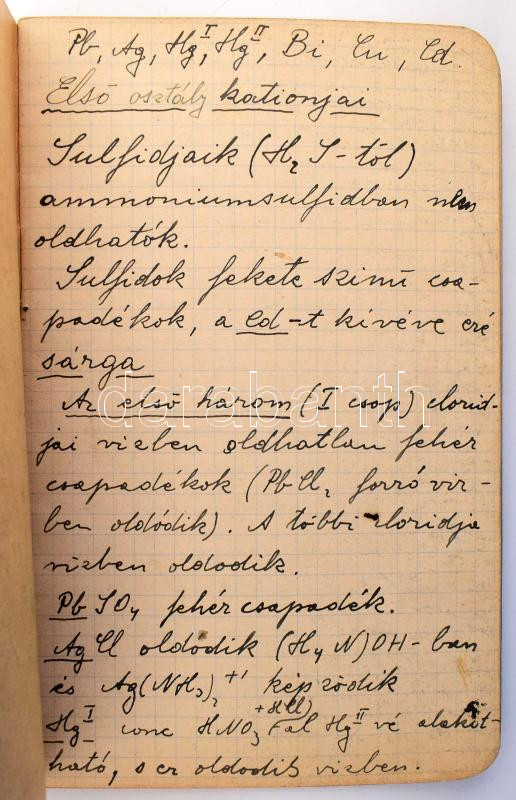 Pb, Ag, Hg^I, Hg^II, Bi, Cu, Cd.
Első osztály kationjai
Sulfidjaik (H₂S-től)
ammoniumsulfidban nem
oldhatók.
Sulfidok fekete szinű csa-
padékok, a Cd-t kivéve ez é
sárga
Az első három (I csop) clorid-
jai vizben oldhatlan fehér
csapadékok (PbCl₂ forró viz-
ben oldódik). A többi cloridja
vizben oldodik.
PbSO₄ fehér csapadék.
AgCl oldodik (H₄N)OH-ban
és Ag(NH₃)₂⁺¹ képződik
+HCl)
Hg^I conc HNO₃-al Hg^II vé alakit-
ható, s ez oldodik vizben.
darabanth